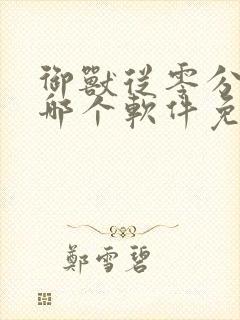 御獸從零分
哪个軟件免
鄭雪碧